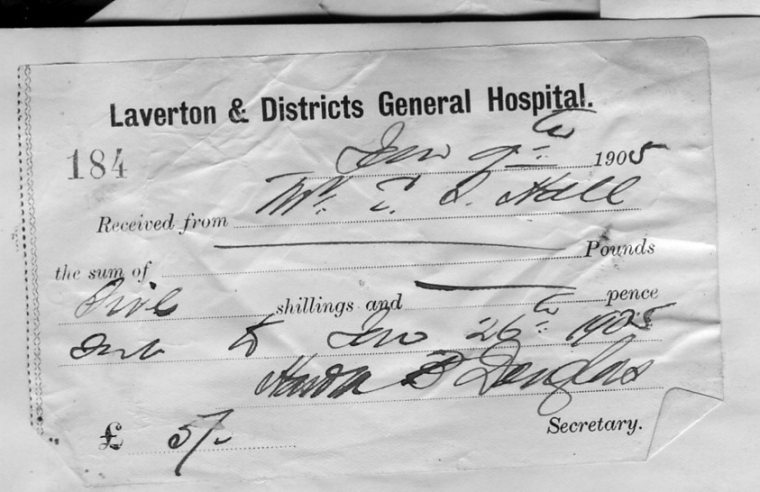 Laverton & Districts General Hospital.
184
Jan 9th 1905
Received from Mr. T. S. Hall
the sum of Pounds
Five shillings and pence
Sub to Jan 26th 1905
Douglas
£ 5/-
Secretary.